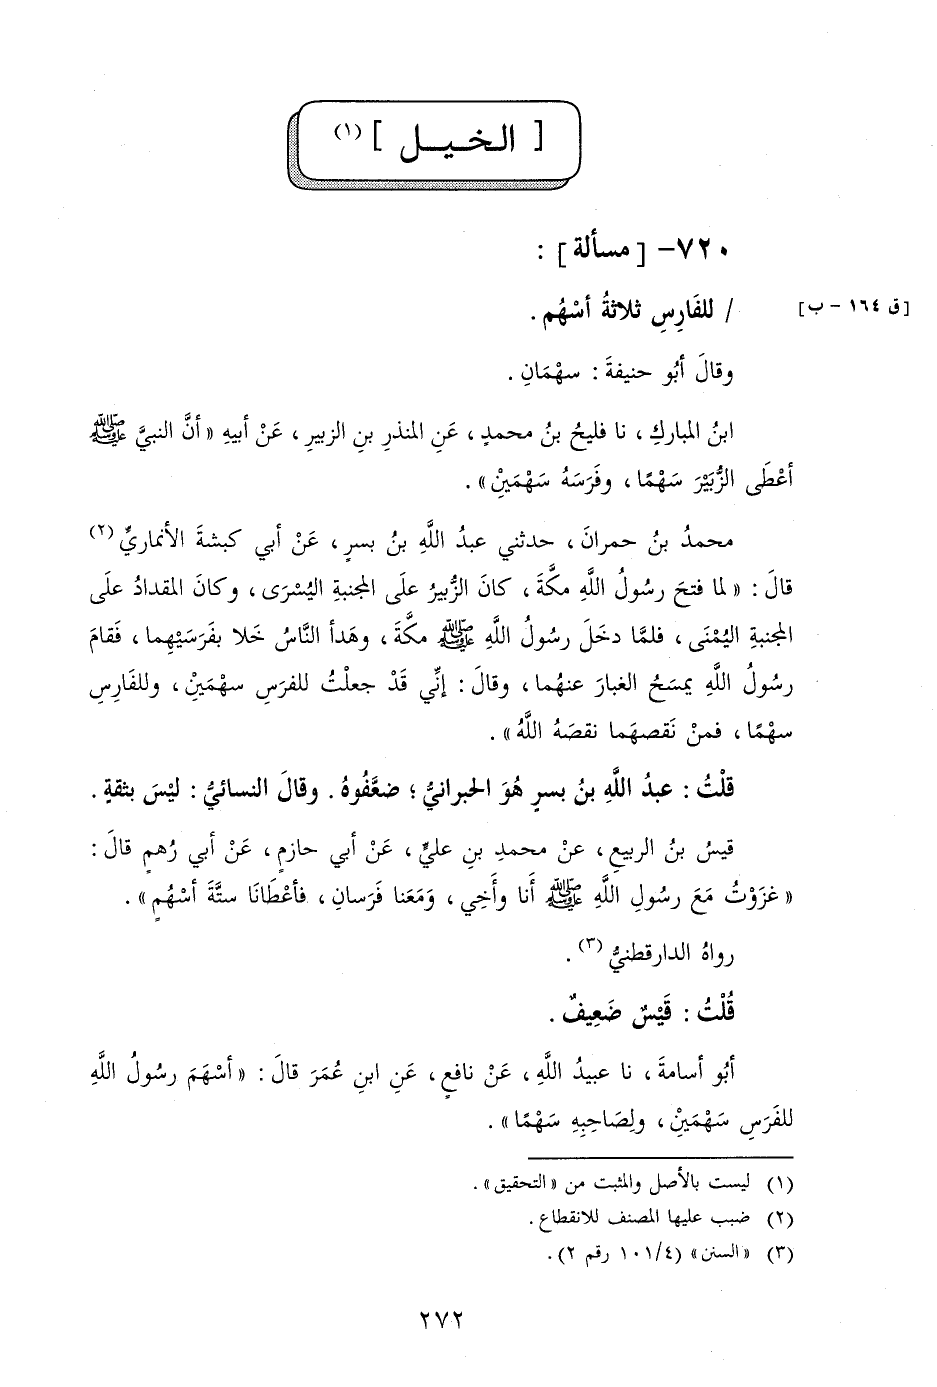 [ الخيل ] (١)
٧٢٠- [ مسألة ] :
[ق ١٦٤ - ب]
/ للفَارِسِ ثلاثةُ أسْهُم .
وقالَ أبُو حنيفةَ : سهْمَانِ .
ابنُ المباركِ ، نا فليحُ بنُ محمدٍ ، عَنِ المنذرِ بنِ الزبيرِ ، عَنْ أبيهِ « أنَّ النبيَّ ﷺ
أعْطَى الزُّبَيْرَ سَهْمًا ، وفَرَسَهُ سَهْمَينْ » .
محمدُ بنُ حمرانَ ، حدثني عبدُ اللَّهِ بنُ بسرٍ ، عَنْ أبي كبشةَ الأنماريِّ (٢)
قالَ : « لما فتحَ رسُولُ اللَّهِ مكَّةَ ، كانَ الزُّبيرُ علَى المجنبةِ اليُسْرَى ، وكانَ المقدادُ علَى
المجنبةِ اليُمْنَى ، فلمَّا دخَلَ رسُولُ اللَّهِ ﷺ مكَّةَ ، وهَدأ النَّاسُ خَلا بفَرَسَيْهِما ، فَقامَ
رسُولُ اللَّهِ يمسَحُ الغبارَ عنهُما ، وقالَ : إنِّي قَدْ جعلْتُ للفرَسِ سهْمَينْ ، وللفَارِسِ
سهْمًا ، فمنْ نَقصهَما نقصَهُ اللَّهُ » .
قلْتُ : عبدُ اللَّهِ بنُ بسرٍ هُوَ الحبرانيُّ ؛ ضعَّفُوهُ . وقالَ النسائيُّ : ليْسَ بثقةٍ .
قيسُ بنُ الربيعِ ، عنْ محمدِ بنِ عليٍّ ، عَنْ أبي حازمٍ ، عَنْ أبي رُهمٍ قالَ :
« غزَوْتُ مَعَ رسُولِ اللَّهِ ﷺ أَنا وأَخِي ، وَمَعَنا فَرَسانِ ، فأعْطَانَا ستَّةَ أسْهُمٍ » .
رواهُ الدارقطنيُّ (٣) .
قُلْتُ : قَيْسٌ ضَعِيفٌ .
أبُو أسامةَ ، نا عبيدُ اللَّهِ ، عَنْ نافعٍ ، عَنِ ابنِ عُمَرَ قالَ : « أسْهَمَ رسُولُ اللَّهِ
للفَرَسِ سَهْمَينْ ، ولِصَاحِبِهِ سَهْمًا » .
(١) ليست بالأصل والمثبت من « التحقيق » .
(٢) ضبب عليها المصنف للانقطاع .
(٣) « السنن » (٤/ ١٠١ رقم ٢) .
٢٧٢